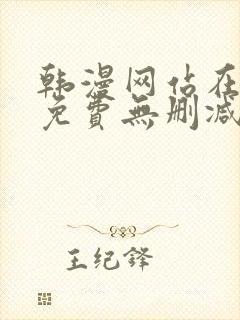 韩漫网站在
免費無删减
王纪锋